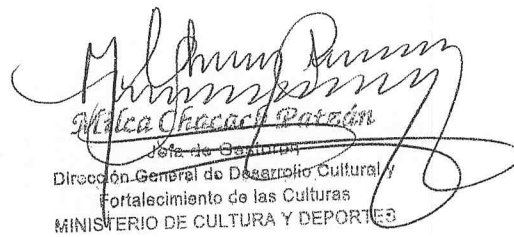 Milca Chacach Patzán
Jefa de
Dirección General de Desarrollo Cultural y
Fortalecimiento de las Culturas
MINISTERIO DE CULTURA Y DEPORTES